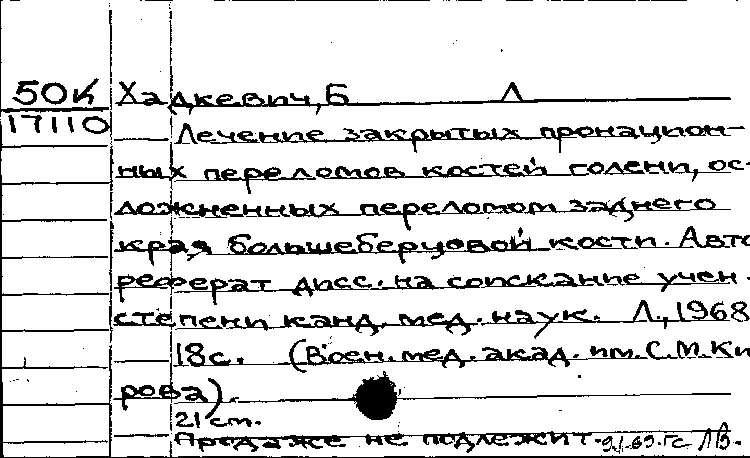 50К Хадкевич, Б Л
17110
Лечение закрытых пронацион-
ных переломов костей голени, ос-
ложненных переломом заднего
края большеберцовой кости. Авто
реферат дисс. на соискание учен.
степени канд. мед. наук. Л., 1968
18с. (Воен. мед. акад. им. С.М. Ки
рова).
21 см.
Продаже не подлежит. 9.1.69. Гс ЛВ.